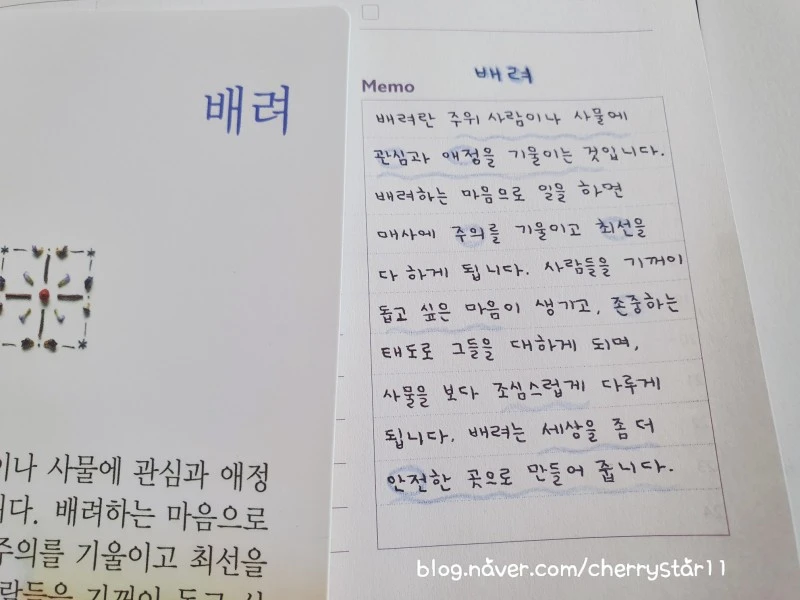 배려
이나 사물에 관심과 애정
니다. 배려하는 마음으로
주의를 기울이고 최선을
람들을 기꺼이 돕고 싶
배려
Memo
배려란 주위 사람이나 사물에
관심과 애정을 기울이는 것입니다.
배려하는 마음으로 일을 하면
매사에 주의를 기울이고 최선을
다 하게 됩니다. 사람들을 기꺼이
돕고 싶은 마음이 생기고, 존중하는
태도로 그들을 대하게 되며,
사물을 보다 조심스럽게 다루게
됩니다. 배려는 세상을 좀 더
안전한 곳으로 만들어 줍니다.
blog.naver.com/cherrystar11